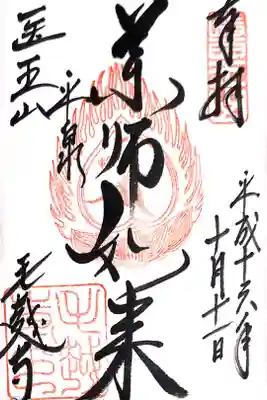 奉拝
平成十六年
十月十一日
薬師如来
医王山
平泉
毛越寺